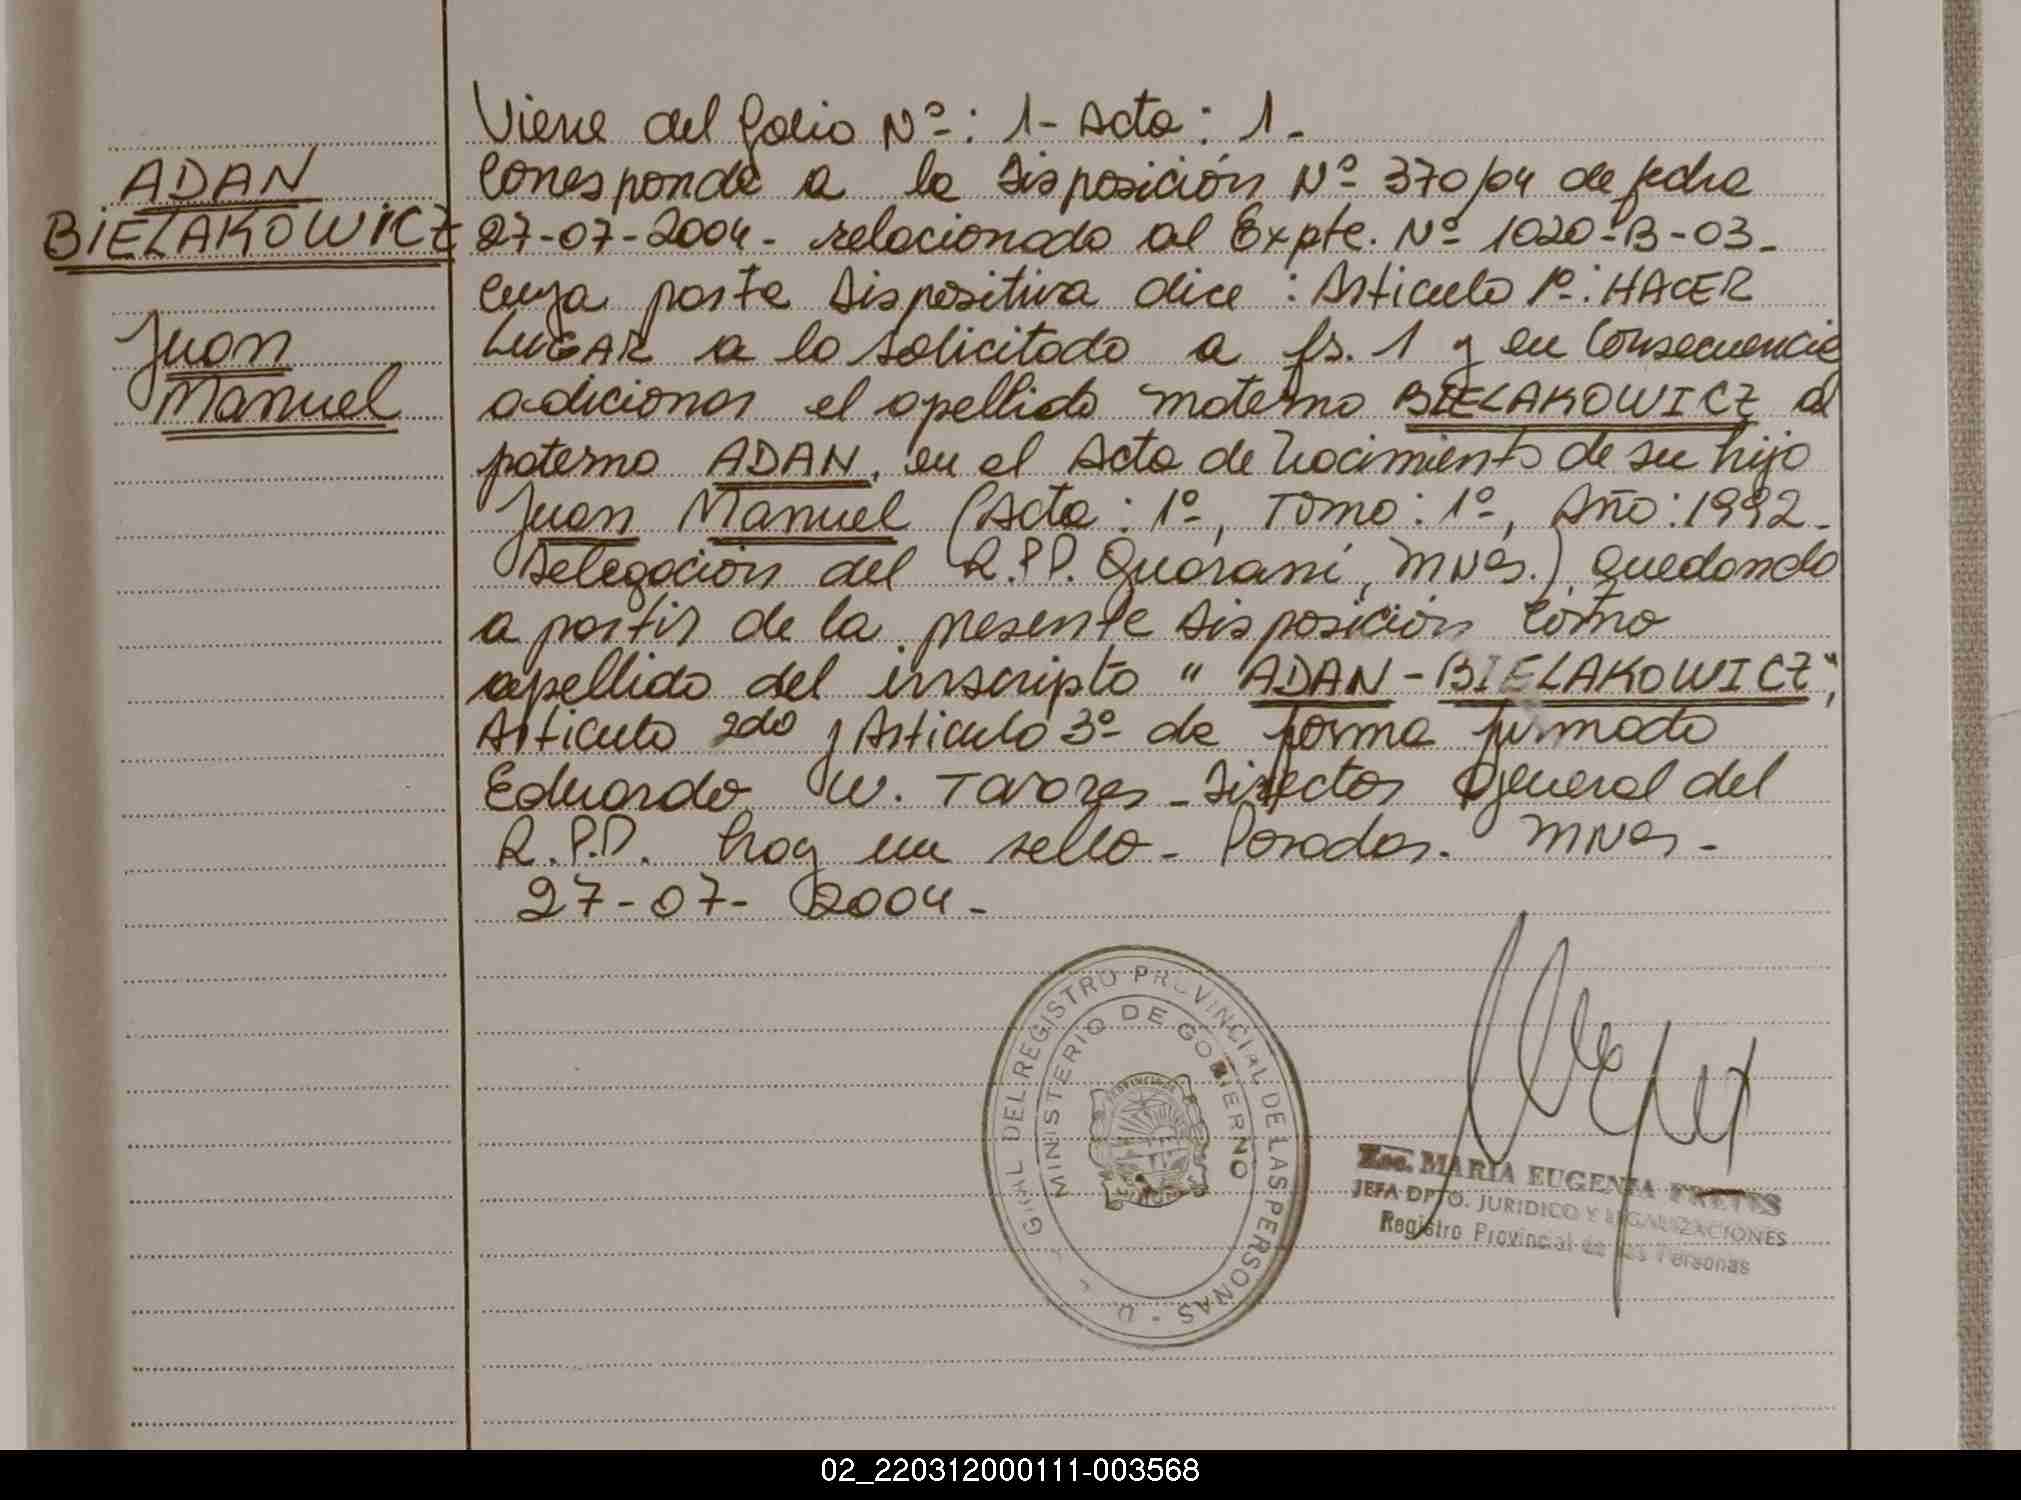 ADAN
BIELAKOWICZ
Juan
Manuel
Viene del folio Nº: 1- Acta: 1.
Corresponde a la Disposición Nº 370/04 de fecha
27-07-2004- relacionado al Expte. Nº 1020-B-03-
cuya parte Dispositiva dice: Articulo 1º: HACER
LUGAR a lo solicitado a fs. 1 y en Consecuencia
adicionar el apellido materno BIELAKOWICZ al
paterno ADAN, en el Acta de Nacimiento de su hijo
Juan Manuel (Acta: 1º, Tomo: 1º, Año: 1992-
Delegación del R.P.P. Guaraní, MNES.) quedando
a partir de la presente Disposición como
apellido del inscripto "ADAN-BIELAKOWICZ",
Articulo 2do y Articulo 3º de forma firmado
Eduardo W. Tavarez - Director General del
R.P.P. hay un sello - Posadas. MNES-
27-07-2004-
GRAL DEL REGISTRO PROVINCIAL DE LAS PERSONAS - D
MINISTERIO DE GOBIERNO
Esc. MARIA EUGENIA FRETES
JEFA DPTO. JURIDICO Y LEGALIZACIONES
Registro Provincial de las Personas
02_220312000111-003568